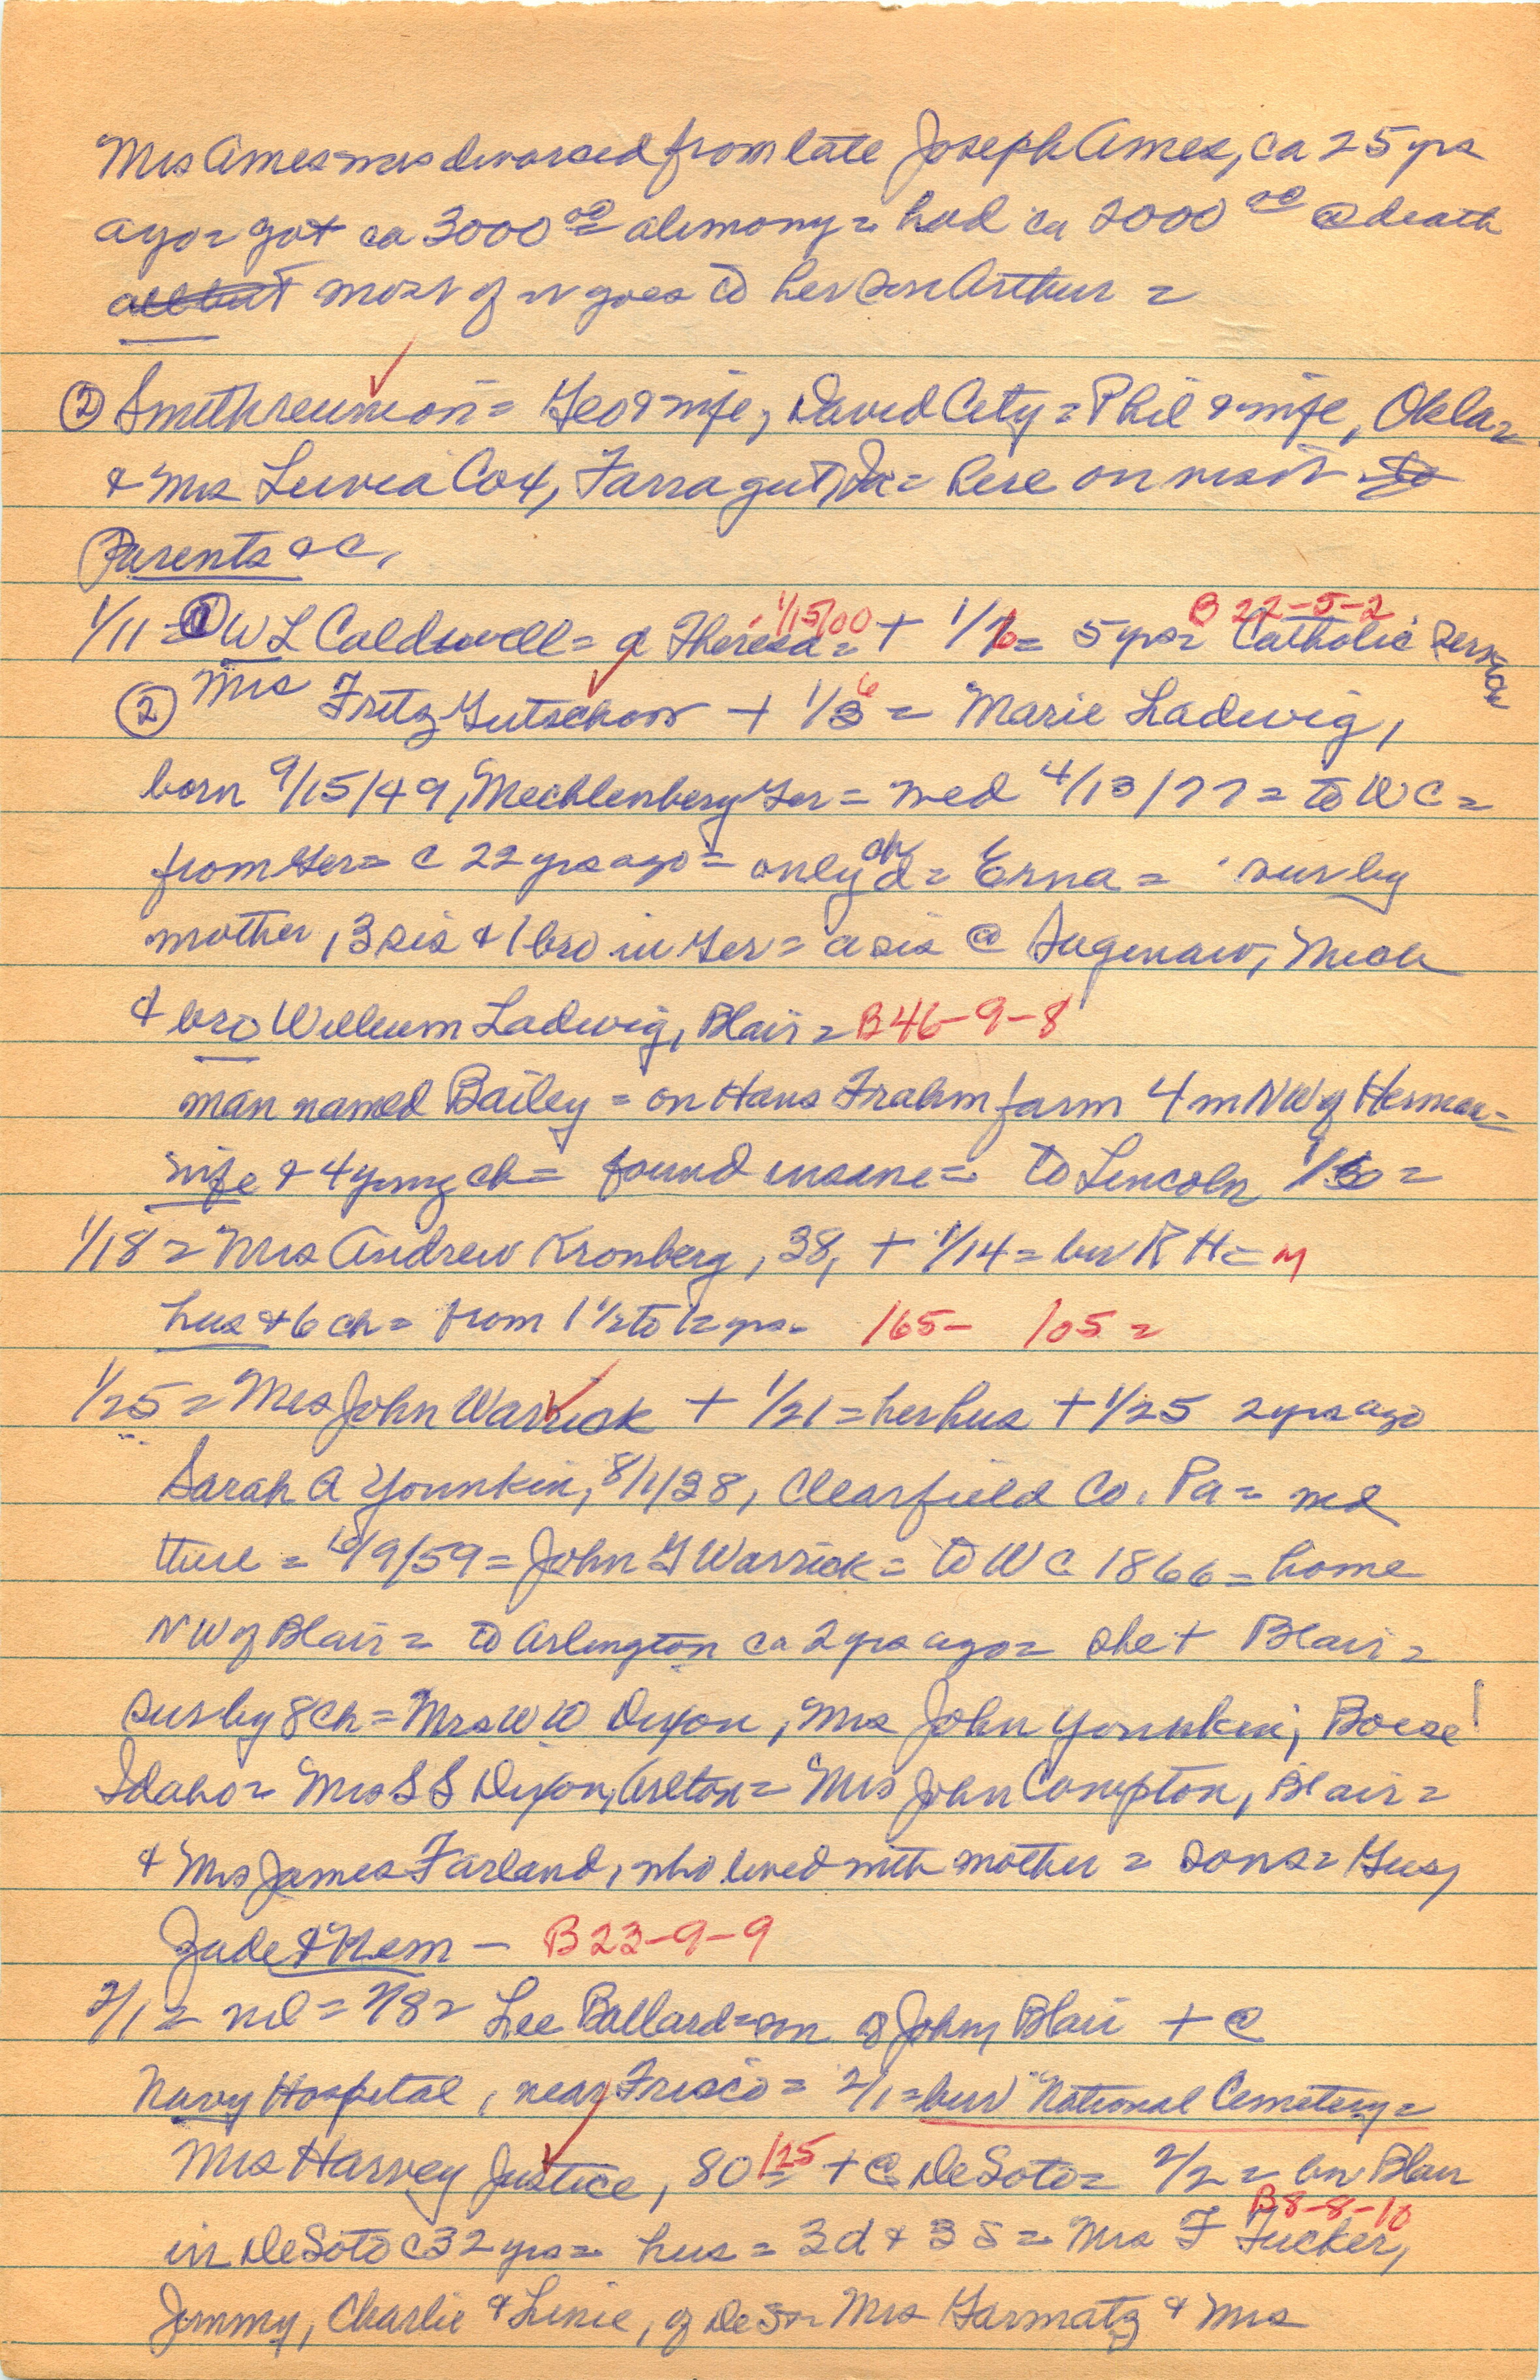 Mrs Ames was divorced from late Joseph Ames, ca 25 yrs
ago = got ca 3000 00 alimony = had ca 2000 00 @ death
all but most of it goes to her son Arthur =
② Smith reunion = Geo & wife, David City = Phil & wife, Okla =
& Mrs Cox, Farragut, Ia = here on visit to
Parents &c.
1/11 = ① W L Caldwell = d Theresa = 1/15/00 + 1/10 = 5 yrs = Catholic service B 22-5-2
② Mrs Fritz Gutschow + 1/6 = Marie Ladwig,
born 9/15/49, Mecklenberg Ger = med 4/13/77 = to W C =
from Ger = c 22 yrs ago = only ch d = Erna = sur by
mother, 3 sis & 1 bro in Ger = a sis @ Sagenaw, Mich
& bro William Ladwig, Blair = B46-9-8
man named Bailey = on Hans Frahm farm 4 m NW of Herman =
wife & 4 young ch = found insane = to Lincoln =
1/18 = Mrs Andrew Kronberg, 38, + 1/14 = bur R H = M
hus & 6 ch = from 1 1/2 to 12 yrs = 165- 105 =
1/25 = Mrs John Warrick + 1/21 = her hus + 1/25 2 yrs ago
Sarah A Younkin, 8/1/38, Clearfield Co. Pa = md
there = 10/9/59 = John G Warrick = to W C 1866 = home
NW of Blair = to Arlington ca 2 yrs ago = she + Blair =
sur by 8 ch = Mrs W W Dixon, Mrs John Younkin, Boise
Idaho = Mrs S S Dixon, Arlton = Mrs John Compton, Blair =
& Mrs James Farland, who lived with mother = sons = Gus,
Jade & Clem - B23-9-9
2/1 = md = 7/8 = Lee Ballard = son of John, Blair + @
Navy Hospital, near Frisco = 2/1 = bur National Cemetery =
Mrs Harvey Justice, 80 = 125 + @ DeSoto = 2/2 = bur Blair
in DeSoto c 32 yrs = hus = 3 d & 3 s = Mrs F Tucker, B8-8-10
Jimmy, Charlie & Linie, of DeSo = Mrs Garmatz & Mrs